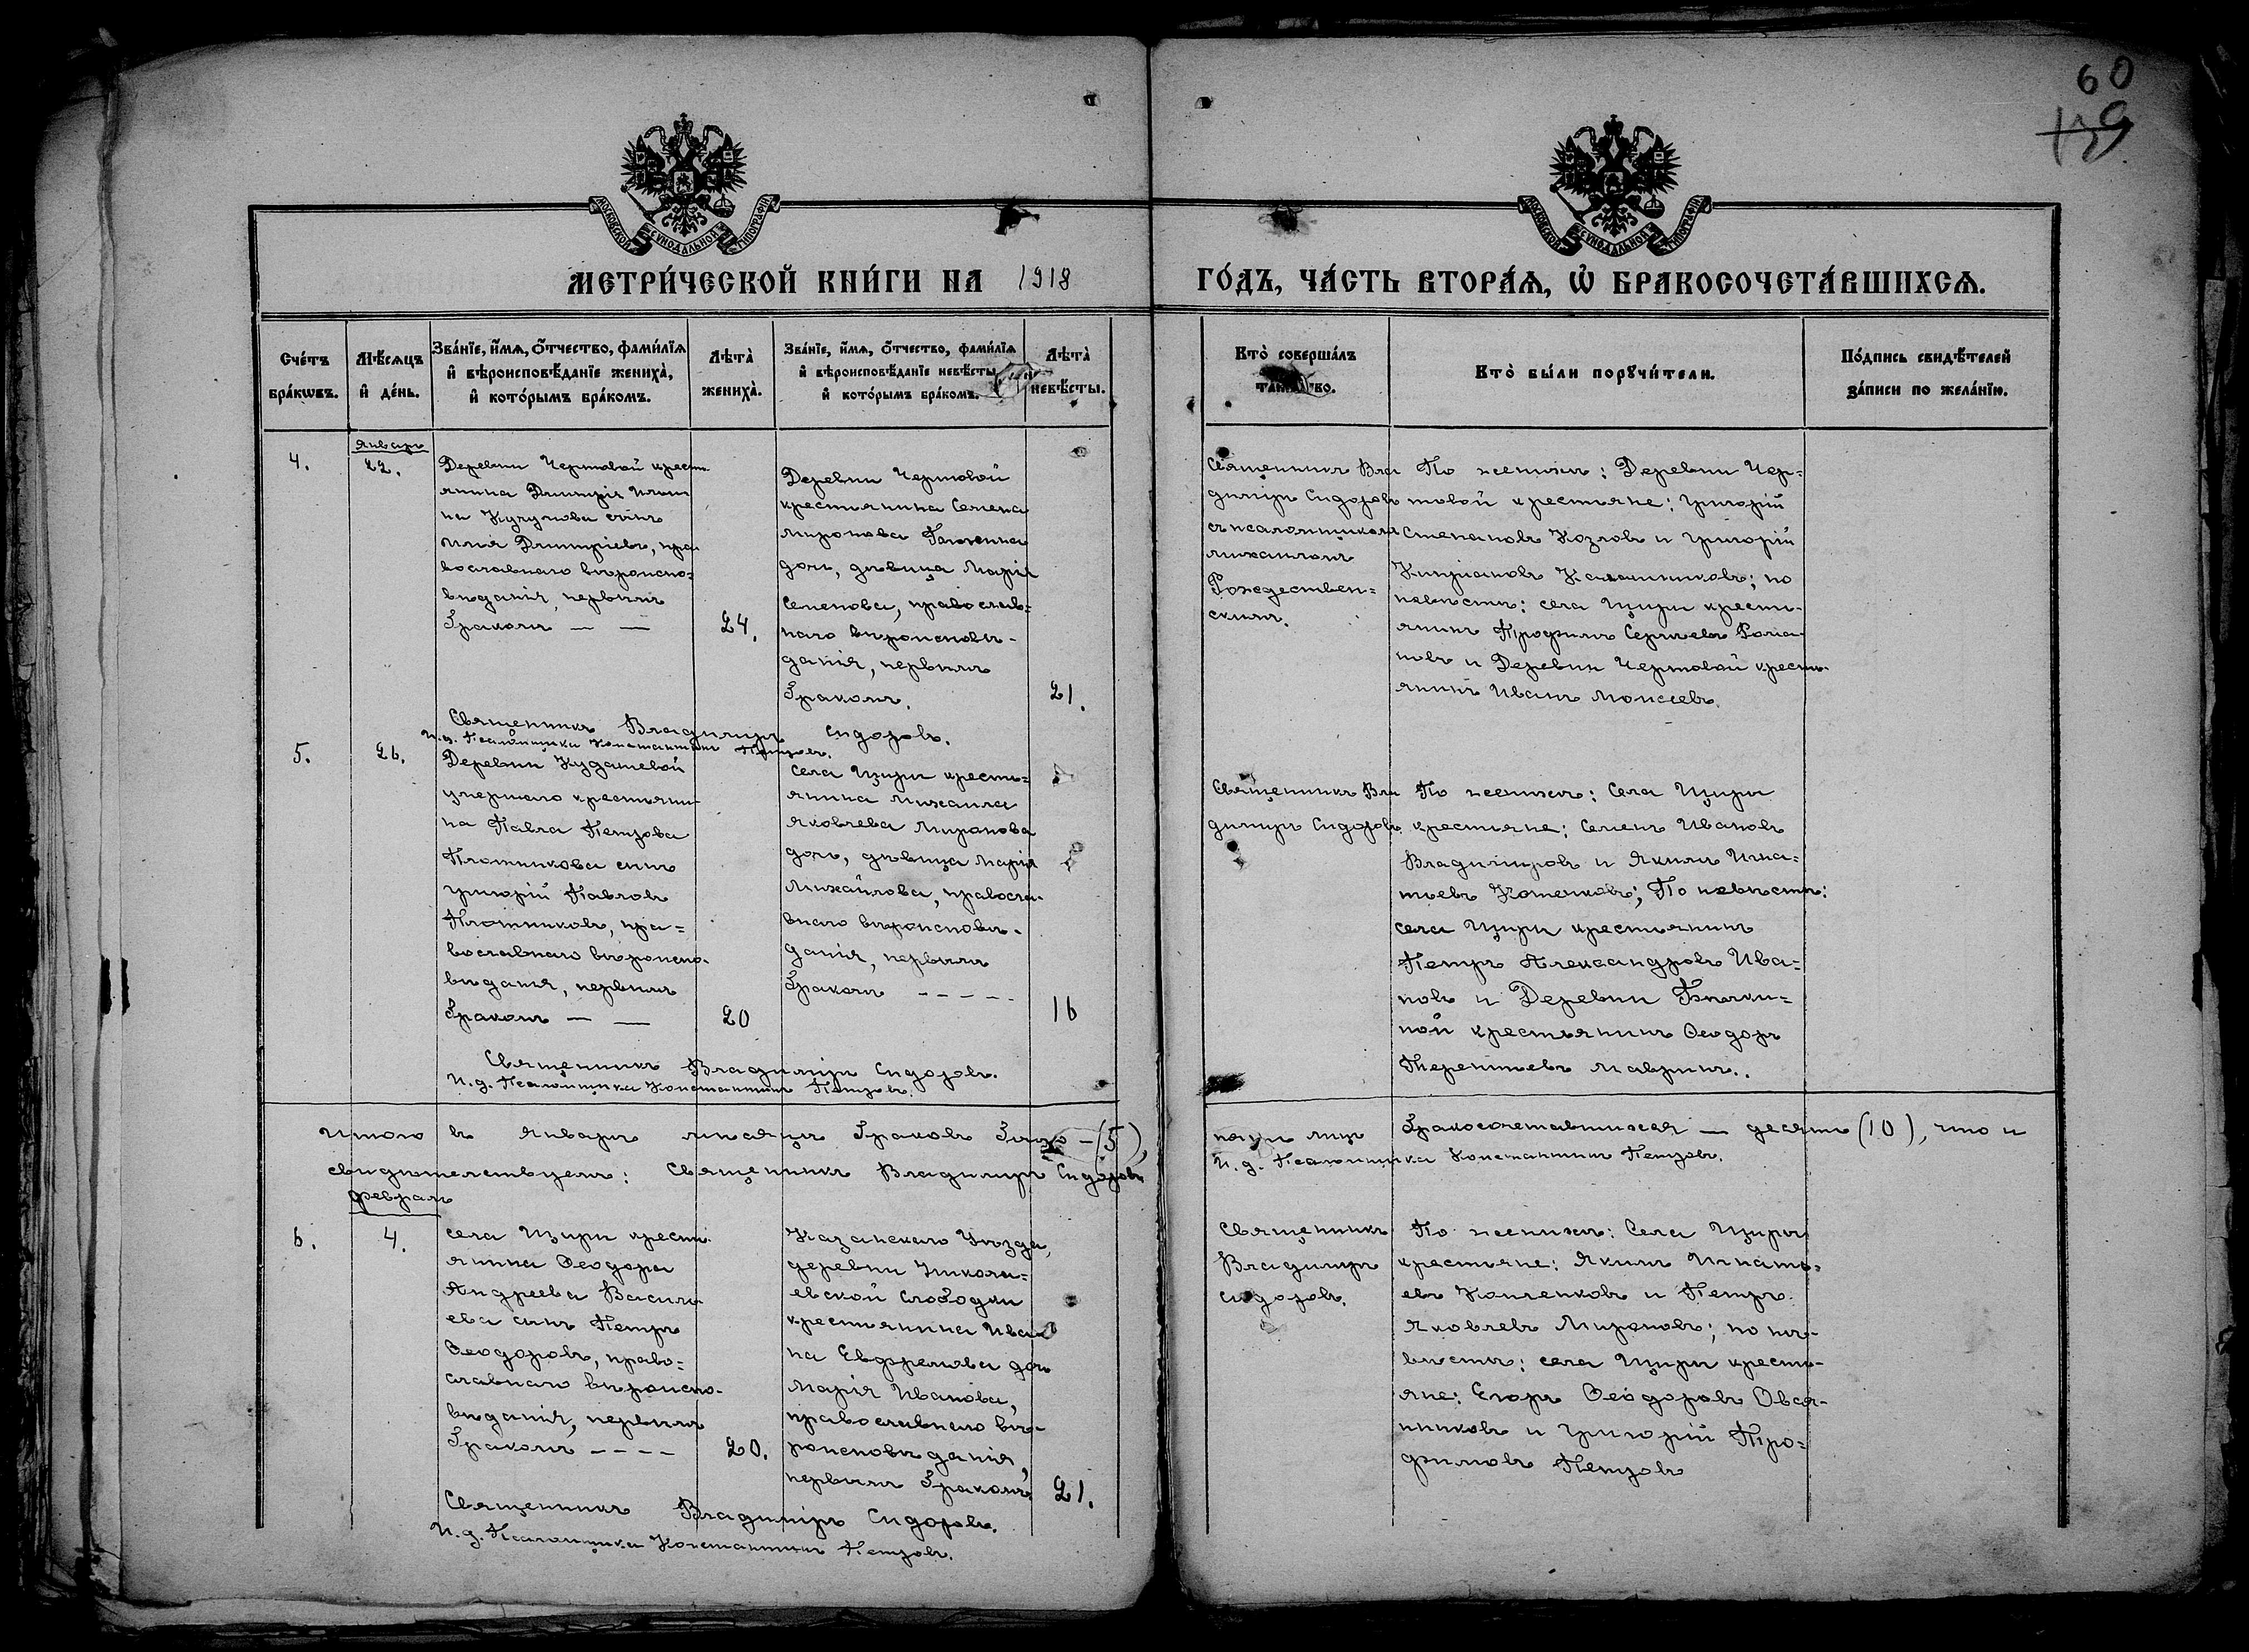 60
139
МОСКОВСКОЙ СѴНОДАЛЬНОЙ ТИПОГРАФІИ
МОСКОВСКОЙ СѴНОДАЛЬНОЙ ТИПОГРАФІИ
МЕТРИ́ЧЕСКОЙ КНИ́ГИ НА 1918
ГО́ДЪ, ЧА́СТЬ ВТОРА́Ѧ, Ѡ҆ БРАКОСОЧЕТА́ВШИХСѦ.
Сче́тъ бра́кѡвъ.
Мѣ́сѧцъ и҆ де́нь.
Зва́нїе, и҆́мѧ, ѻ҆́тчество, фами́лїѧ
и҆ вѣроисповѣ́данїе жениха̀,
и҆ кото́рымъ бра́комъ.
Лѣта̀ жениха̀.
Зва́нїе, и҆́мѧ, ѻ҆́тчество, фами́лїѧ
и҆ вѣроисповѣ́данїе невѣ́сты
и҆ кото́рымъ бра́комъ.
Лѣта̀ невѣ́сты.
Кто̀ соверша́лъ
Кто̀ бы́ли порꙋчи́тели.
По́дпись свидѣ́телей
за́писи по жела́нїю.
Январь
4.
22.
Деревни Чертовой крест-
янина Дмитрія
Кучумова сынъ
Илія Дмитріевъ, пра-
вославнаго вѣроиспо-
вѣданія, первымъ
бракомъ — —
24.
Деревни Чертовой
крестьянина Семена
Миронова
дочь, дѣвица Марія
Семенова, православ-
наго вѣроисповѣ-
данія, первымъ
бракомъ.
21.
Священникъ Вла
диміръ Сидоровъ
съ псаломщикомъ
Михаиломъ
Рождествен-
скимъ.
По женихѣ: Деревни Чер-
товой крестьяне: Григорій
Степановъ Козловъ и Григорій
Кипріановъ Калашниковъ; по
невѣстѣ: села Шири кресть-
янинъ Трофимъ Сергѣевъ Рома-
новъ и Деревни Чертовой кресть-
янинъ Иванъ Моисеевъ.
Священникъ Владиміръ Сидоровъ.
И.д. Псаломщика Константинъ Петровъ.
5.
26.
Деревни Кудашевой
умершаго крестьяни-
на Павла Петрова
Плотникова сынъ
Григорій Павловъ
Плотниковъ, пра-
вославнаго вѣроиспо-
вѣданія, первымъ
бракомъ — —
20
Села Шири кресть-
янина Михаила
Яковлева Миронова
дочь, дѣвица Марія
Михайлова, правосла-
внаго вѣроисповѣ-
данія, первымъ
бракомъ - - - - -
16
Священникъ Вла
димиръ Сидоровъ.
По женихѣ: Села Шири
крестьяне: Семенъ Ивановъ
Владиміровъ и Якимъ Игна-
тьевъ Котенковъ; По невѣстѣ:
села Шири крестьянинъ
Петръ Александровъ Ива-
новъ и Деревни
ной крестьянинъ Ѳеодоръ
Терентьевъ Мавринъ.
Священникъ Владиміръ Сидоровъ.
И.д. Псаломщика Константинъ Петровъ.
Итого въ январѣ мѣсяцѣ браковъ было — (5),
лицъ бракосочетавшихся — десять (10), что и
свидѣтельствуемъ: Священникъ Владиміръ Сидоровъ
И.д. Псаломщика Константинъ Петровъ.
февраль
6.
4.
Села Шири крест-
янина Ѳеодора
Андреева Василь-
ева сынъ Петръ
Ѳеодоровъ, право-
славнаго вѣроиспо-
вѣданія, первымъ
бракомъ - - - -
20.
Казанскаго Уѣзда,
деревни Никола-
евской Слободки
крестьянина Ива-
на Ефремова дочь
Марія Иванова,
православнаго вѣ-
роисповѣданія,
первымъ бракомъ.
21.
Священникъ
Владиміръ
Сидоровъ.
По женихѣ: Села Шири
крестьяне: Якимъ Игнать-
евъ Котенковъ и Петръ
Яковлевъ Мироновъ; по не-
вѣстѣ: села Шири кресть-
яне: Егоръ Ѳеодоровъ Овся-
нниковъ и Григорій Тро-
фимовъ Петровъ
Священникъ Владиміръ Сидоровъ.
И.д. Псаломщика Константинъ Петровъ.